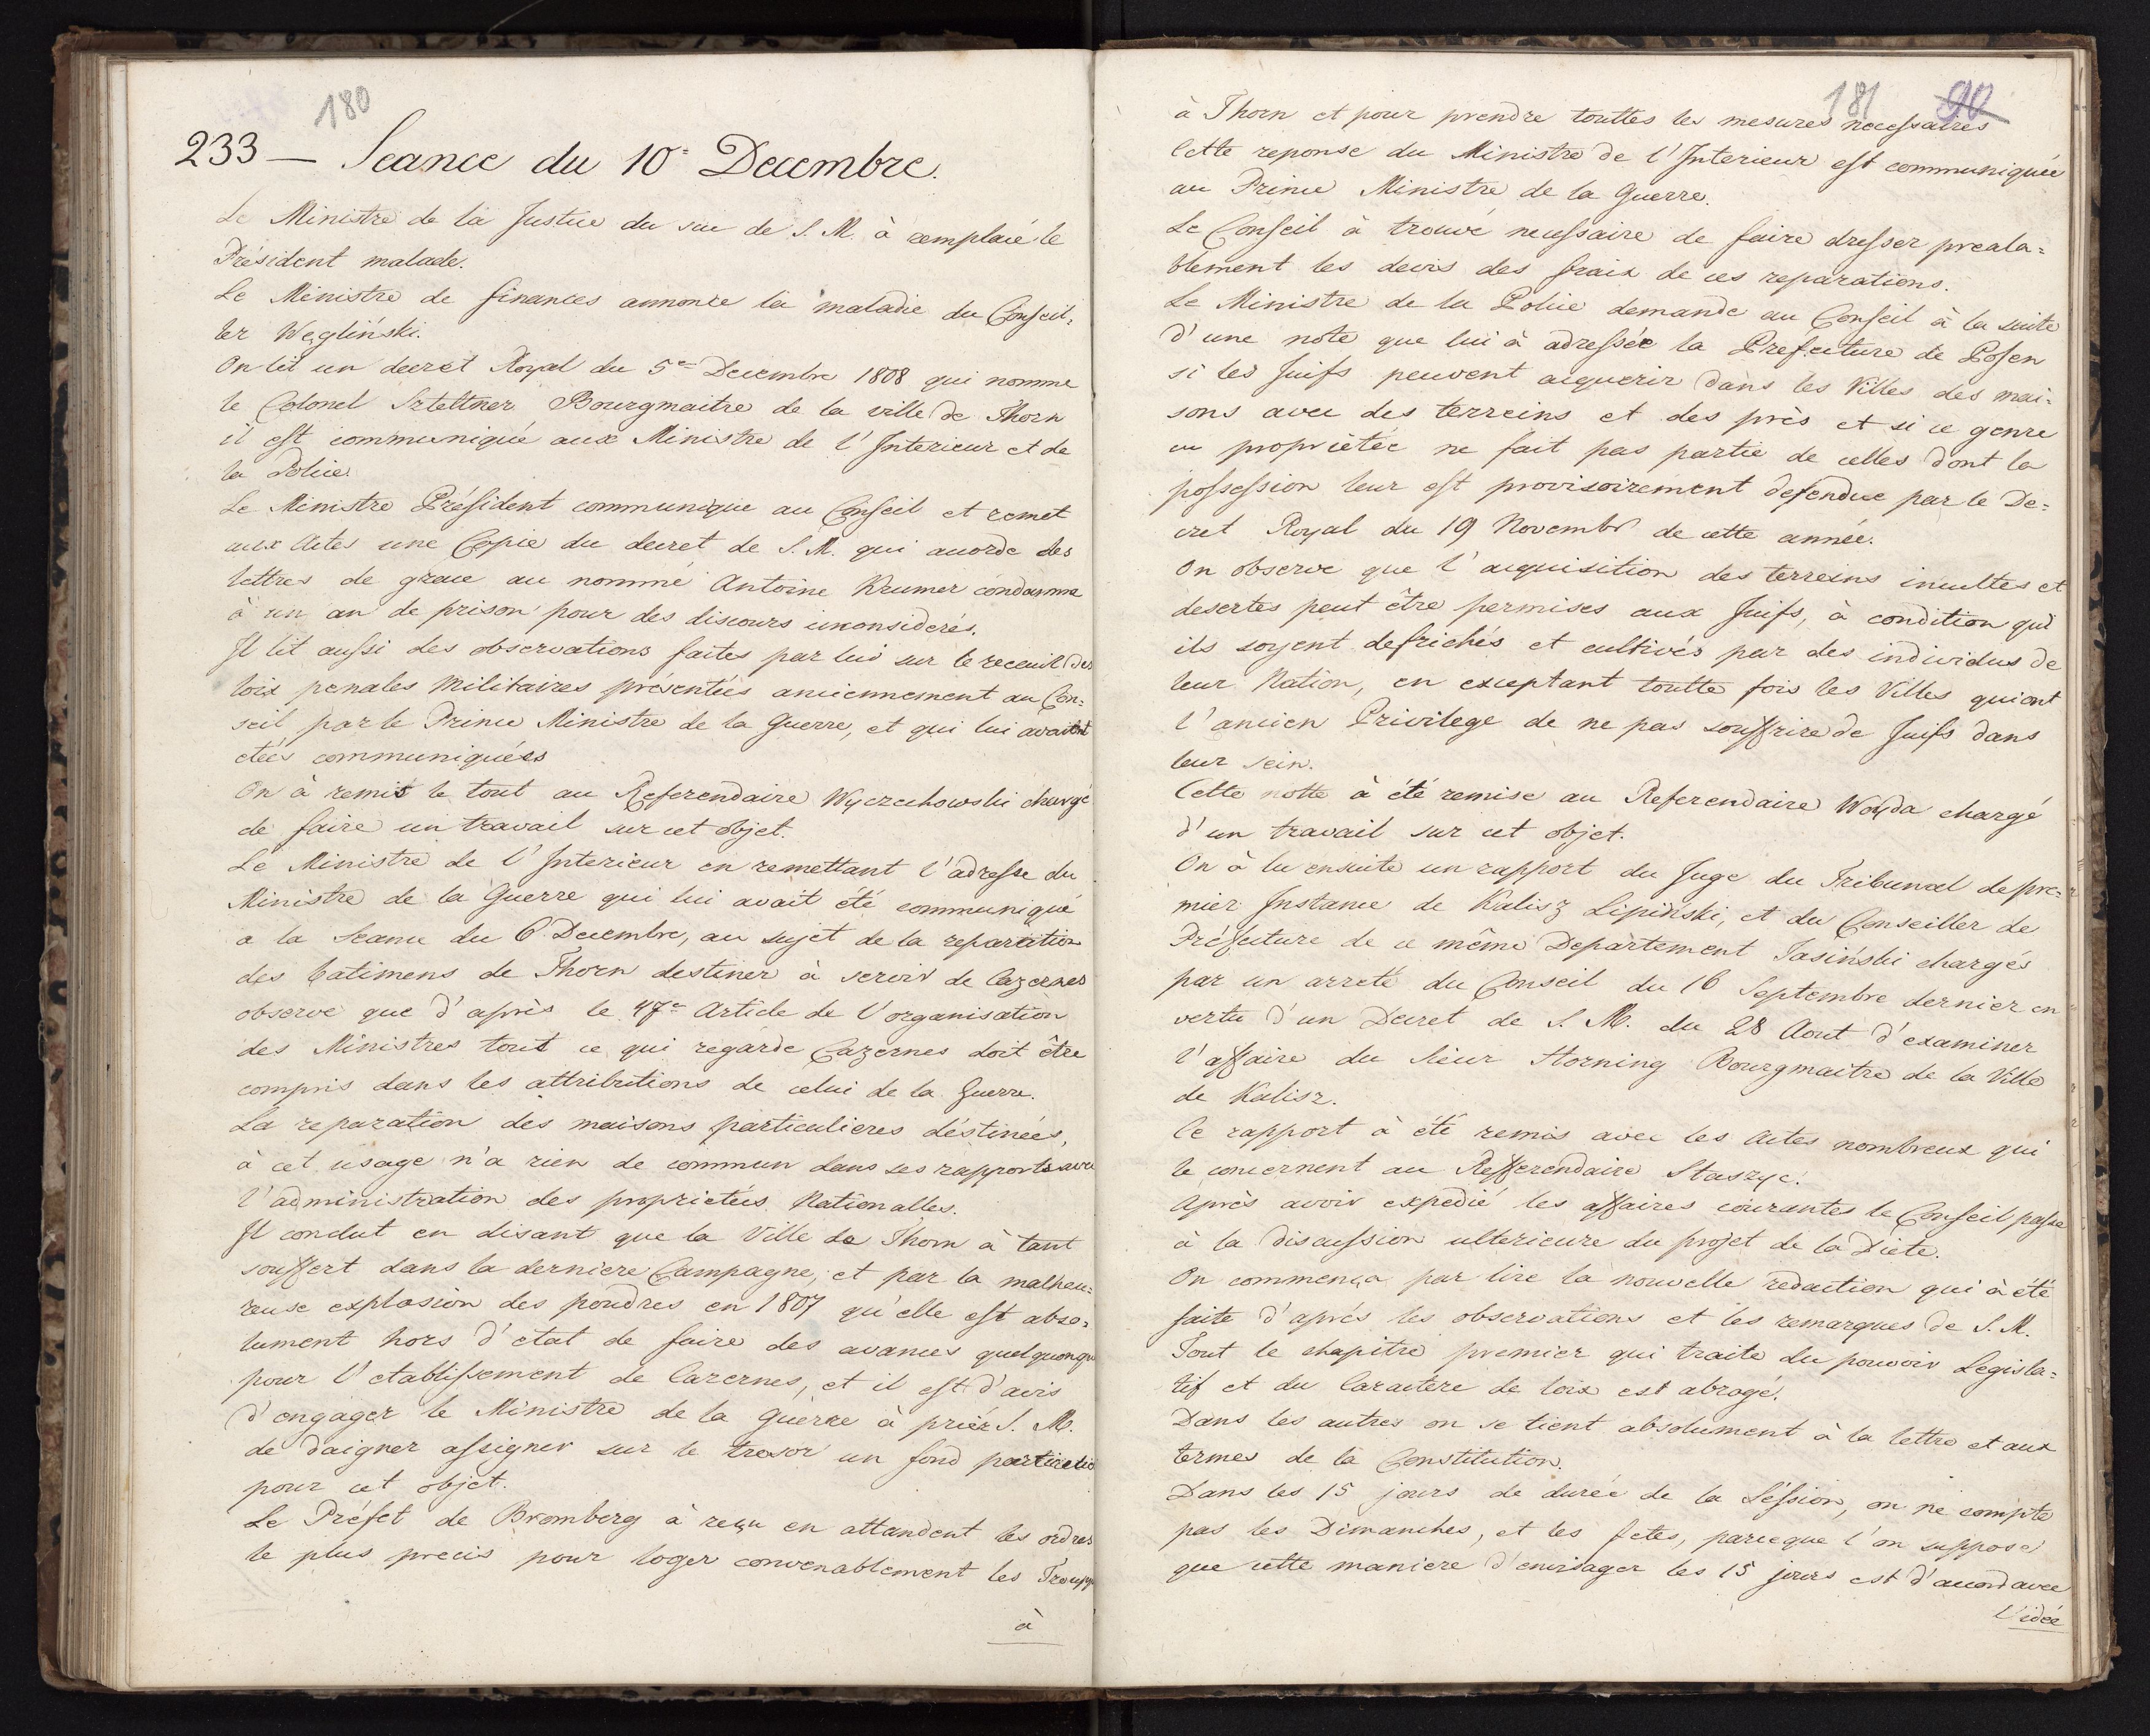 180
233 — Seance du 10e Decembre.
Le Ministre de la Justice du sue de S. M. à remplacé le
Président malade.
Le Ministre de finances annonce la maladie du Conseil=
ler Węgliński.
On lit un decret Royal du 5e Decembre 1808 qui nomme
le Colonel Sztettner Bourgmaitre de la ville de Thorn
il est communiqué aux Ministre de l'Interieur et de
la Police.
Le Ministre Président communique au Conseil et remet
aux Actes une Copie du decret de S. M. qui accorde des
lettres de grace au nommé Antoine Krumer condamne
à un an de prison pour des discours inconsiderés.
Il lit aussi des observations faites par lui sur le receuil des
loix penales Militaires présentées anciennement au Con=
seil par le Prince Ministre de la Guerre, et qui lui avaient
etées communiquées
On à remis le tout au Referendaire Wyczechowski chargé
de faire un travail sur cet objet.
Le Ministre de l'Interieur en remettant l'adresse du
Ministre de la Guerre qui lui avait été communiqué
a la Seance du 6 Decembre, au sujet de la reparation
des batimens de Thorn destiner à servir de Cazernes
observe que d'après le 47e Article de l'organisation
des Ministres tout ce qui regarde Cazernes doit être
compris dans les attributions de celui de la Guerre.
La reparation des maisons particulieres déstinées,
à cet usage n'a rien de commun dans ses rapports avec
l'administration des proprietées Nationalles.
Il conclut en disant que la Ville de Thorn à tant
souffert dans la derniere Campagne, et par la malheu=
reuse explosion des poudres en 1807 qu'elle est abso=
lument hors d'etat de faire des avances quelquonque
pour l'etablissement de Cazernes, et il est d'avis
d'engager le Ministre de la Guerre à prier S. M.
de daigner assigner sur le tresor un fond particulie
pour cet objet.
Le Préfet de Bromberg à reçu en attandent les ordres
le plus precis pour loger convenablement les Troupp
à
181 90
à Thorn et pour prendre touttes les mesures necessaires
Cette reponse du Ministre de l'Interieur est communiquée
au Prince Ministre de la Guerre.
Le Conseil à trouvé necessaire de faire dresser preala=
blement les devis des fraix de ces reparations.
Le Ministre de la Police demande au Conseil à la suite
d'une note que lui à adressée la Prefecture de Posen
si les Juifs peuvent acquerir dans les Villes des mai=
sons avec des terreins et des près et si ce genre
en proprietée ne fait pas partie de celles dont la
possession leur est provisoirement defendue par le De=
cret Royal du 19 Novembr de cette année.
On observe que l'acquisition des terreins incultes et
desertes peut être permises aux Juifs, à condition qu'
ils soyent defrichés et cultivés par des individus de
leur Nation, en exceptant toutte fois les Villes qui ont
l'ancien Privilege de ne pas souffrire de Juifs dans
leur sein.
Cette notte à été remise au Referendaire Woyda chargé
d'un travail sur cet objet.
On à lu ensuite un rapport du Juge du Tribunal de pre=
mier Instance de Kalisz Lipiński, et du Conseiller de
Préfecture de ce même Departement Jasiński chargés
par un arreté du Conseil du 16 Septembre dernier en
vertu d'un Decret de S. M. du 28 Aout d'examiner
l'affaire du Sieur Horning Bourgmaitre de la Ville
de Kalisz.
Ce rapport à été remis avec les Actes nombreux qui
le concernent au Refferendaire Staszyc.
Après avoir expedié les affaires courantes le Conseil passe
à la discussion ulterieure du projet de la Diete.
On commença par lire la nouvelle redaction qui à été
faite d'aprés les observations et les remarques de S. M.
Tout le chapitre premier qui traite du pouvoir Legisla=
tif et du Caractere de loix est abrogé.
Dans les autres on se tient absolument à la lettre et aux
termes de la Constitution.
Dans les 15 jours de durée de la Séssion, on ne compte
pas les Dimanches, et les fetes, parceque l'on suppose
que cette maniere d'envisager les 15 jours est d'accord avec
l'idée